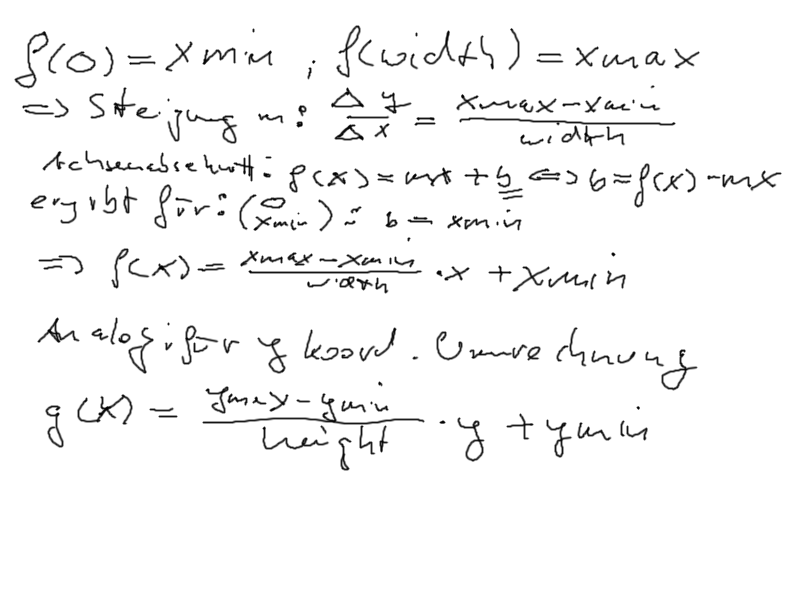 f(0) = xmin ; f(width) = xmax
=> Steigung m: Δy/Δx = (xmax-xmin)/width
Achsenabschnitt: f(x) = mx + b <=> b = f(x) - mx
ergibt für: (0 xmin): b = xmin
=> f(x) = (xmax-xmin)/width · x + xmin
Analog für y koord. Umrechnung
g(x) = (ymax-ymin)/height · y + ymin